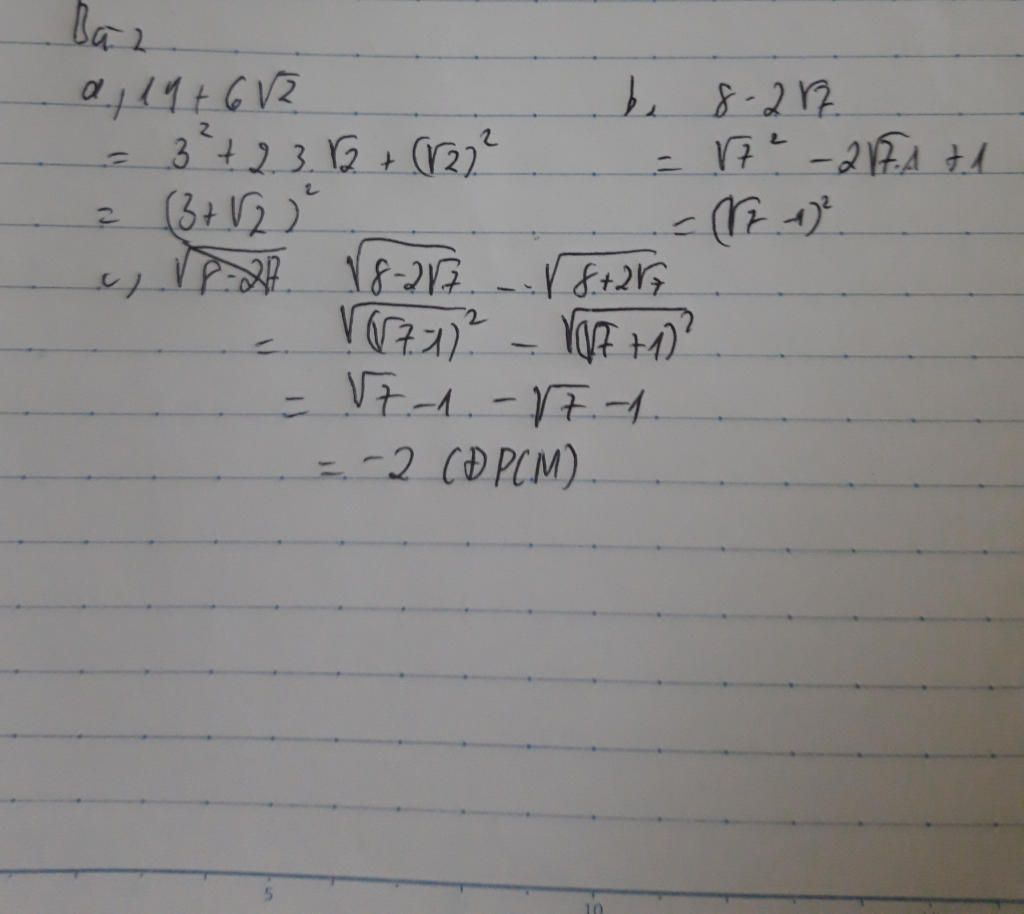 Bài 2
a, 11 + 6√2
= 3² + 2.3.√2 + (√2)²
= (3+√2)²
b, 8 - 2√7
= √7² - 2√7.1 + 1
= (√7 - 1)²
c, √8-2√7 - √8+2√7
= √(√7-1)² - √(√7+1)²
= √7 - 1 - √7 - 1
= -2 (ĐPCM)
5 10